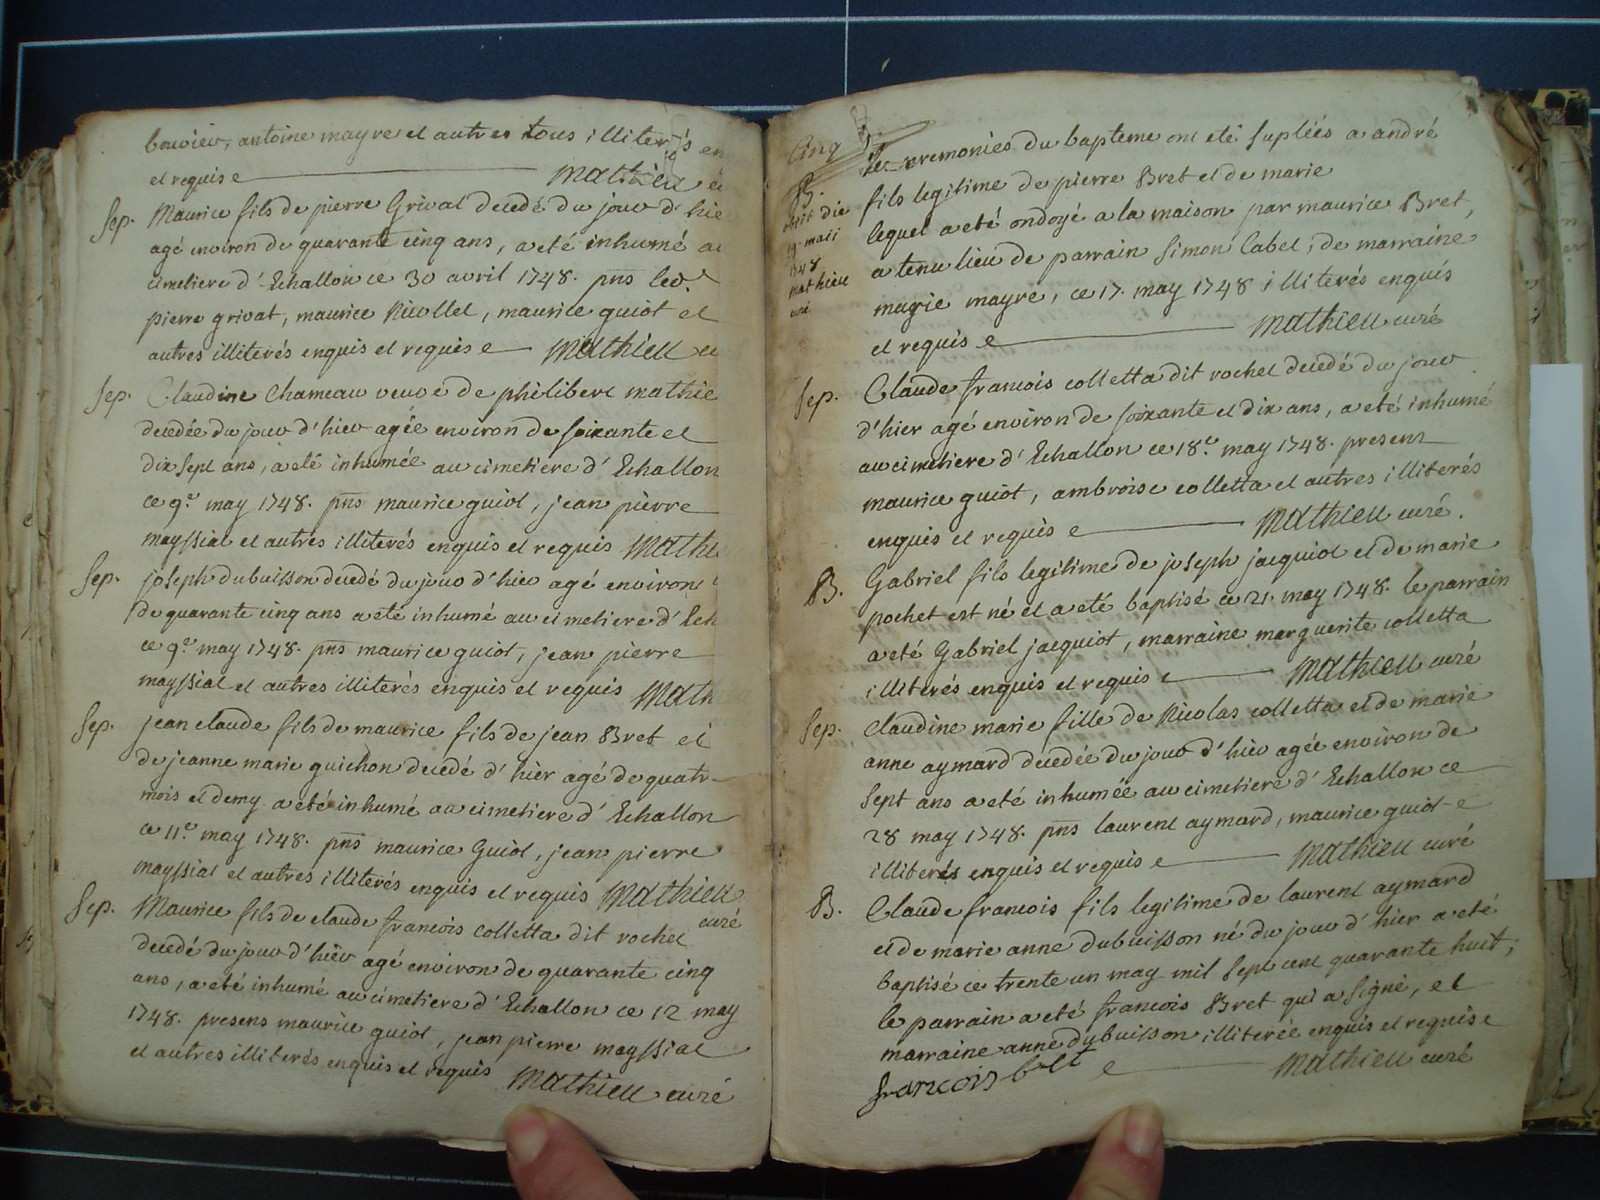 bouvier, antoine mayre et autres tous illiterés en
et requis e mathieu
Sep. Maurice fils de pierre Grivat decedé du jour d'hie
agé environ de quarante cinq ans, a eté inhumé au
cimetiere d'Echallon ce 30 avril 1748. pns led.
pierre grivat, maurice Nicollet, maurice guiot et
autres illiterés enquis et requis e mathieu cu
Sep. Claudine Chameau veuve de philibert mathie
decedée du jour d'hier agée environ de soixante et
dix sept ans, a eté inhumée au cimetiere d'Echallon
ce 9e may 1748. pns maurice guiot, jean pierre
mayssiat et autres illiterés enquis et requis Mathi
Sep. joseph dubuisson decedé du jour d'hier agé environ
de quarante cinq ans a eté inhumé au cimetiere d'Ech
ce 9e may 1748. pns maurice guiot, jean pierre
mayssiat et autres illiterés enquis et requis Math
Sep. jean claude fils de maurice fils de jean Bret et
de jeanne marie guichon decedé d'hier agé de quatr
mois et demy a eté inhumé au cimetiere d'Echallon
ce 11e may 1748. pns maurice Guiot, jean pierre
mayssiat et autres illiterés enquis et requis Mathieu
curé
Sep. Maurice fils de claude francois Colletta dit rochet
decedé du jour d'hier agé environ de quarante cinq
ans, a eté inhumé au cimetiere d'Echallon ce 12 may
1748. presens maurice guiot, jean pierre mayssiat
et autres illiterés enquis et requis Mathieu curé
Cinq
B. les ceremonies du bapteme ont eté suplées a andré
fils legitime de pierre Bret et de marie
lequel a eté ondoyé a la maison par maurice Bret,
a tenu lieu de parrain Simon Cabet, de marraine
marie mayre, ce 17. may 1748 illiterés enquis
et requis e mathieu curé
obiit die
19 maii
1748
mathieu
curé
Sep. Claude francois colletta dit rochet decedé du jour
d'hier agé environ de soixante et dix ans, a eté inhumé
au cimetiere d'Echallon ce 18e may 1748. presens
maurice guiot, ambroise colletta et autres illiterés
enquis et requis e Mathieu curé.
B. Gabriel fils legitime de joseph jacquiot et de marie
pochet est né et a eté baptisé ce 21. may 1748. le parrain
a eté Gabriel jacquiot, marraine marguerite colletta
illiterés enquis et requis e mathieu curé
Sep. Claudine marie fille de Nicolas colletta et de marie
anne aymard decedée du jour d'hier agée environ de
sept ans a eté inhumée au cimetiere d'Echallon ce
28 may 1748. pns laurent aymard, maurice guiot e
illiterés enquis et requis e mathieu curé
B. Claude francois fils legitime de laurent aymard
et de marie anne dubuisson né du jour d'hier a eté
baptisé ce trente un may mil sept cent quarante huit;
le parrain a eté francois Bret qui a signé, et
marraine anne dubuisson illiterée enquis et requise
francois bret e mathieu curé